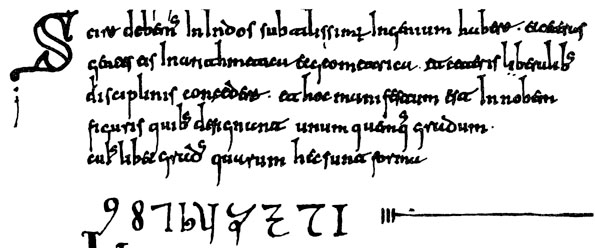 Scire debemus in Indos subtilissimum ingenium habere. et ceteras
gentes eis in arithmetica et geometrica et ceteris liberalibus
disciplinis concedere. et hoc manifestum est in nobem
figuris quibus designant unum quemque gradum
cuiuslibet gradus quarum hec sunt forma
9 8 7 6 4 3 2 1